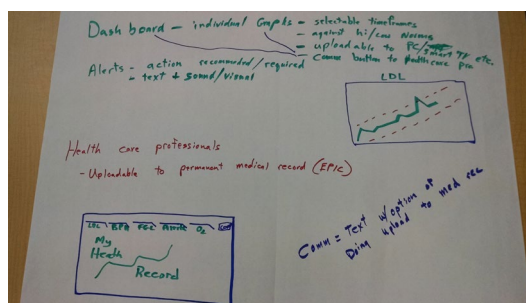 Dash board - individual Graphs - selectable timeframes
- against hi/low norms
- uploadable to PC/smart etc.
- Comm button to healthcare pro
Alerts - action recommended/required
- text + sound/visual
LDL
Health care professionals
- Uploadable to permanent medical record (EPIC)
LDL
O2
My
Heath
Record
Comm = Text w/option of
Doing upload to med rec